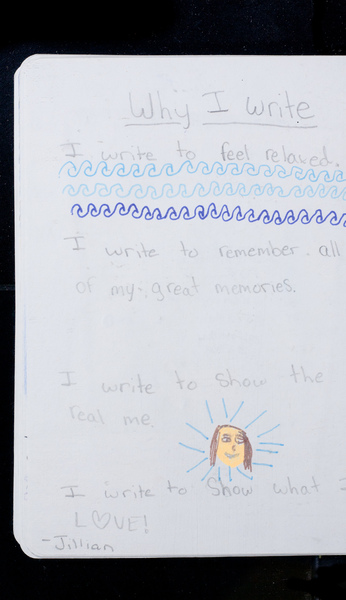 Why I write
I write to feel relaxed.
I write to remember all
of my great memories.
I write to show the
real me.
I write to show what I
L♡VE!
-Jillian